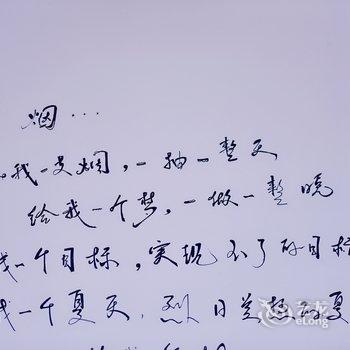 烟…
我一支烟，一抽一整天
给我一个梦，一做一整晚
我一个目标，实现不了的目标
我一个夏天，烈日炎热的夏
艺龙
eLong